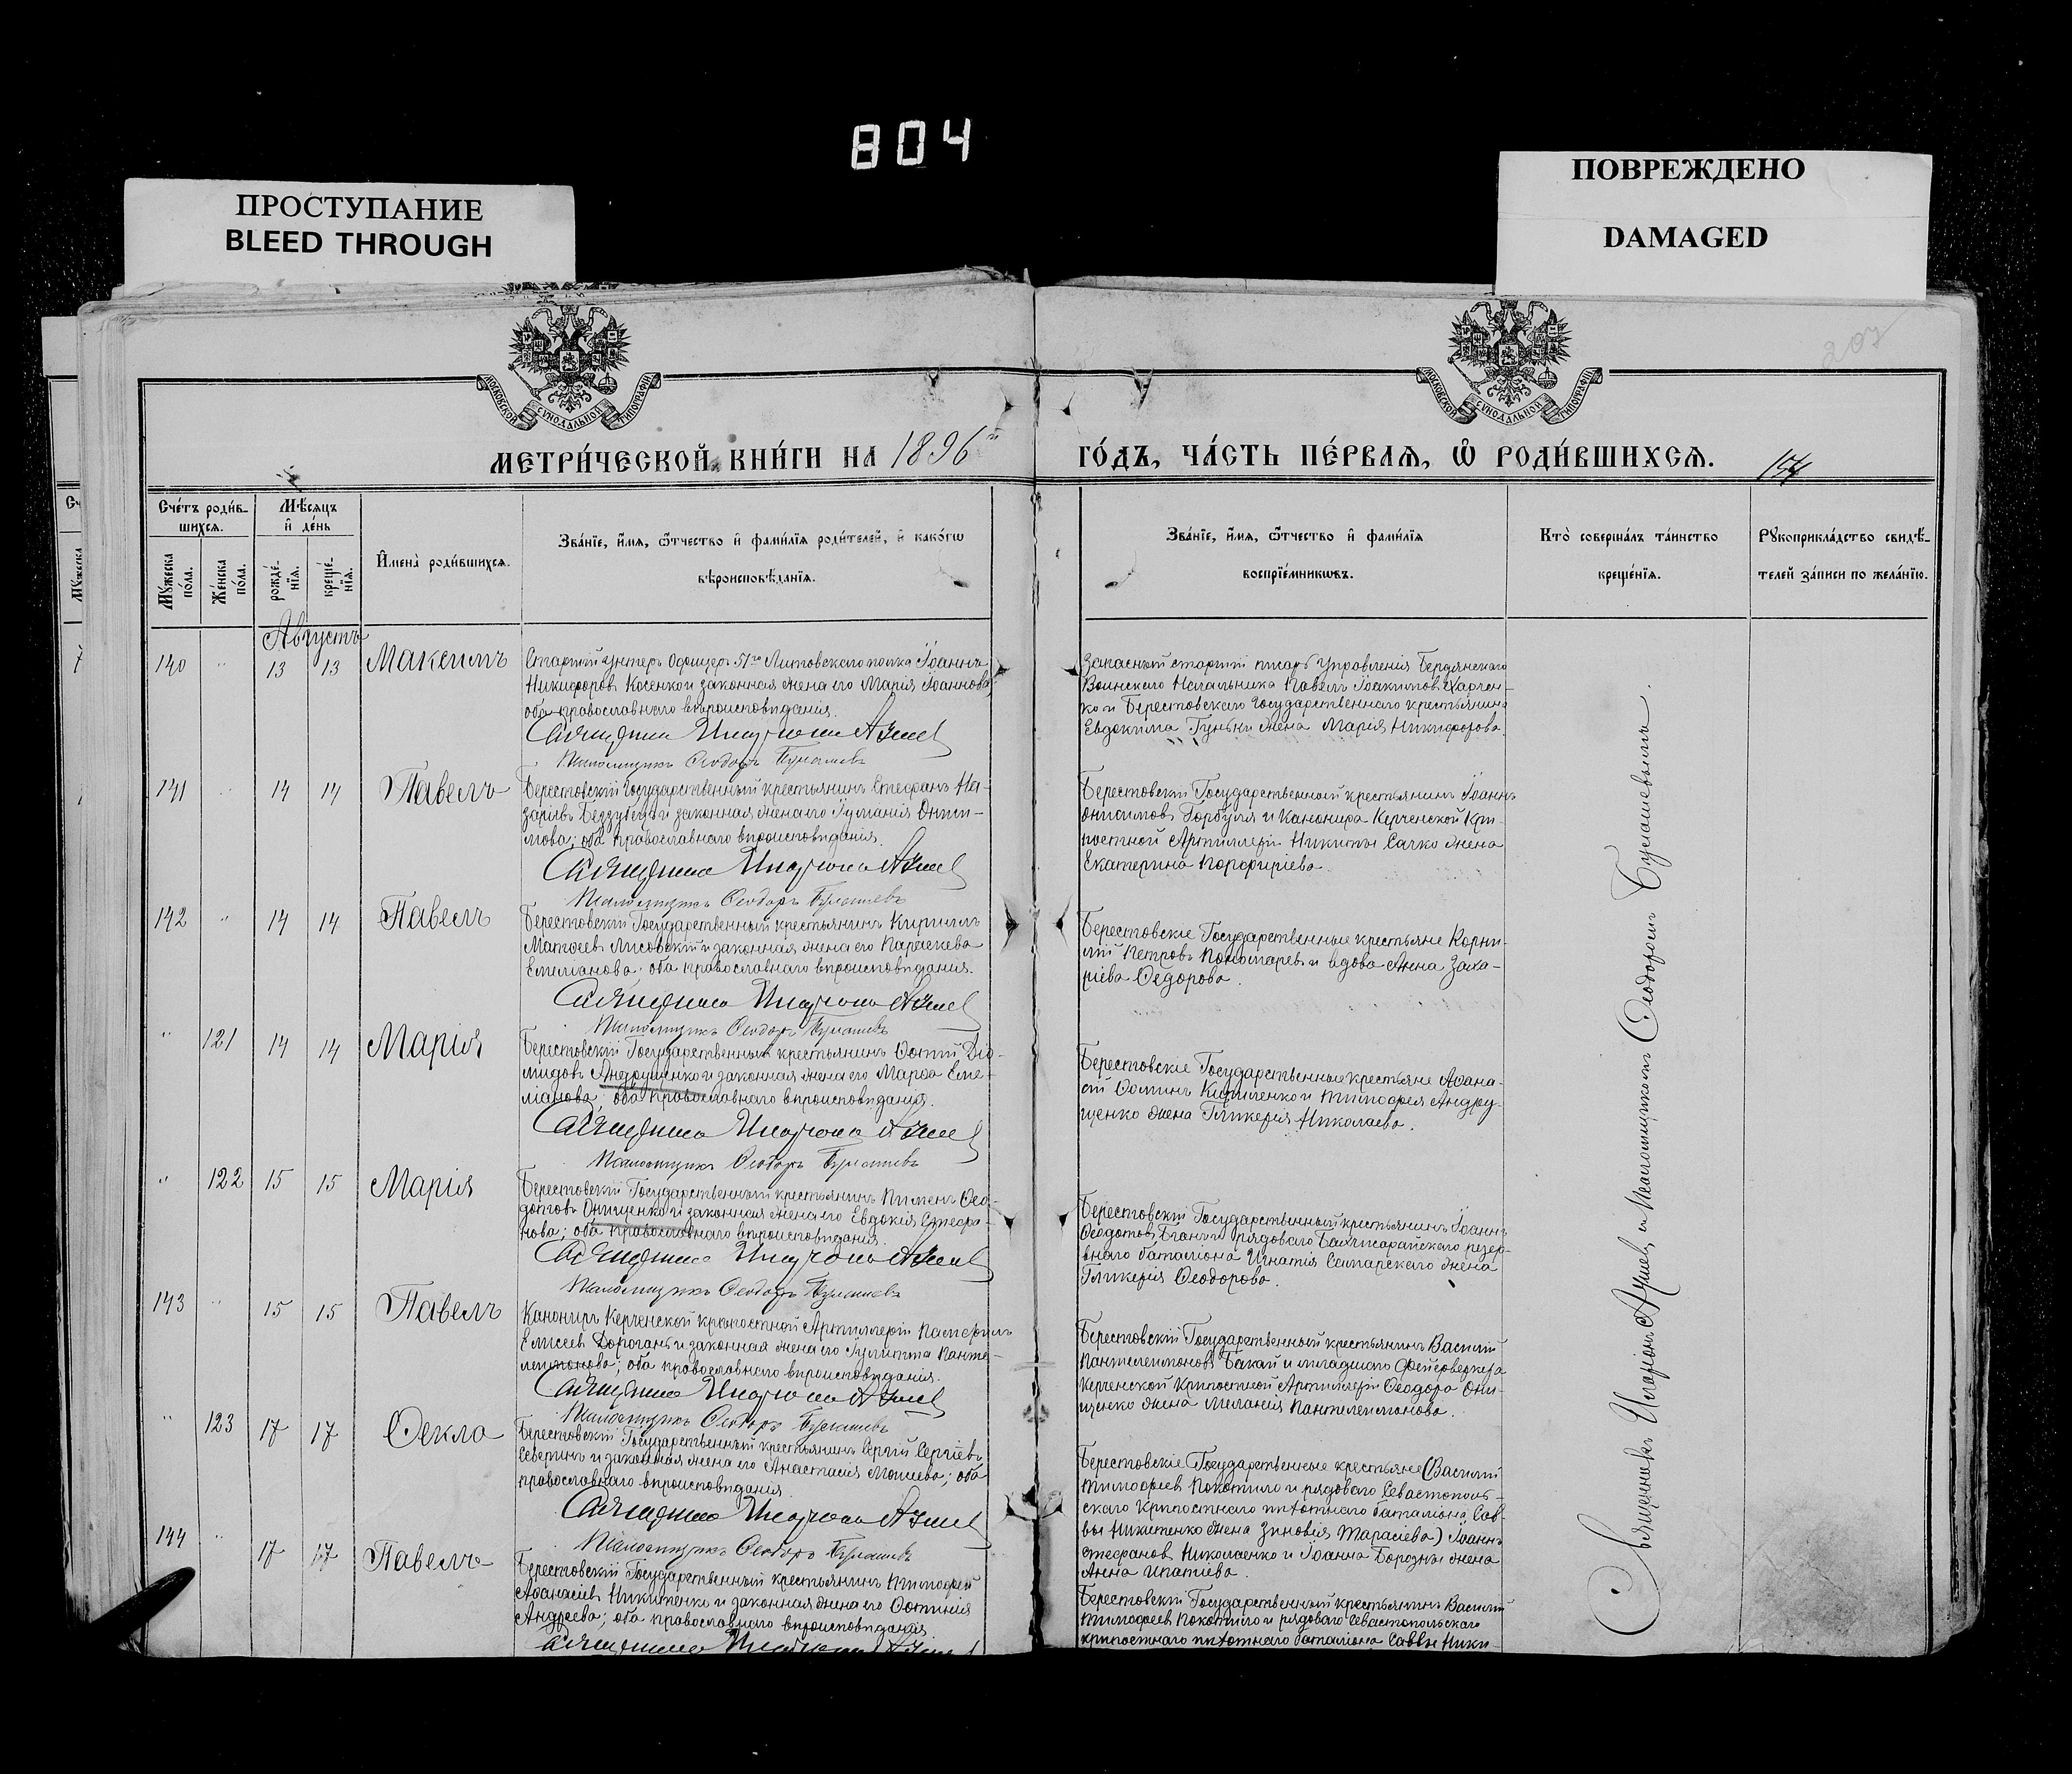 804
ПРОСТУПАНИЕ
BLEED THROUGH
ПОВРЕЖДЕНО
DAMAGED
207
МОСКОВСКОЙ СѴНОДАЛЬНОЙ ТИПОГРАФІИ
МОСКОВСКОЙ СѴНОДАЛЬНОЙ ТИПОГРАФІИ
МЕТРИ́ЧЕСКОЙ КНИ́ГИ НА 1896й
ГО́ДЪ, ЧА́СТЬ ПЕ́РВАЯ, Ѿ РОДИ́ВШИХСЯ.
Сче́тъ роди́в-
шихся.
Мѣ́сяцъ
и̂ де́нь
Мꙋжеска
по́ла.
Же́нска
по́ла.
рожде́-
нїя.
креще́-
нїя.
И̂мена̀ роди́вшихся.
Зва́нїе, и́мя, ѻ́тчество и̂ фами́лїя роди́телей, и̂ како́гѡ
вѣроисповѣ́данїя.
Зва́нїе, и́мя, ѻ́тчество и̂ фами́лїя
воспрїе́мникѡвъ.
Кто̀ соверша́лъ та́инство
креще́нїя.
Рꙋкоприкла́дство свидѣ́-
телей за́писи по жела́нїю.
Августъ
140 " 13 13 Максимъ
Старшій унтеръ Офицеръ 51го Литовскаго полка Іоаннъ
Никифоровъ Косенко и законная жена его Марія Іоаннова;
оба православнаго вѣроисповѣданія.
Священникъ
Псаломщикъ Ѳеодоръ
Запасный старшій писарь Управленія Бердянскаго
Воинскаго Начальника Павелъ Іоакимовъ Харчен-
ко и Берестовскаго Государственнаго крестьянина
Евдокима Гуньки жена Марія Никифорова.
141 " 14 14 Павелъ
Берестовскій Государственный крестьянинъ Стефанъ На-
заріевъ и законная жена его Іуліанія Ониси-
мова; оба православнаго вѣроисповѣданія.
Священникъ
Псаломщикъ Ѳеодоръ
Берестовскій Государственный крестьянинъ Іоаннъ
Онисимовъ Горбуля и Канонира Керченской Крѣ-
постной Артиллеріи Никиты Сачко жена
Екатерина Порфиріева.
142 " 14 14 Павелъ
Берестовскій Государственный крестьянинъ Кириллъ
Матѳеевъ Лисовскій и законная жена его Параскева
Емиліанова; оба православнаго вѣроисповѣданія.
Священникъ
Псаломщикъ Ѳеодоръ
Берестовскіе Государственные крестьяне Корни-
лій Петровъ Пономаревъ и вдова Анна Заха-
ріева Ѳедорова.
" 121 14 14 Марія
Берестовскій Государственный крестьянинъ Фотій Діо-
мидовъ Андрущенко и законная жена его Марѳа Еми-
ліанова; оба православнаго вѣроисповѣданія.
Священникъ
Псаломщикъ Ѳеодоръ
Берестовскіе Государственные крестьяне Аѳана-
сій Ѳоминъ Кириленко и Тимоѳея Андру-
щенко жена Гликерія Николаева.
" 122 15 15 Марія
Берестовскій Государственный крестьянинъ Пименъ Ѳео-
дотовъ Онищенко и законная жена его Евдокія Стефа-
нова; оба православнаго вѣроисповѣданія.
Священникъ
Псаломщикъ Ѳеодоръ
Берестовскій Государственный крестьянинъ Іоаннъ
Ѳеодотовъ и рядоваго Бахчисарайскаго резер-
внаго баталіона Игнатія жена
Гликерія Ѳеодорова.
143 " 15 15 Павелъ
Канониръ Керченской крѣпостной Артиллеріи Памфилъ
Елисеевъ Дорогань и законная жена его Іулитта Панте-
леимонова; оба православнаго вѣроисповѣданія.
Священникъ
Псаломщикъ Ѳеодоръ
Берестовскій Государственный крестьянинъ Василій
Пантелеимоновъ Бакай и младшаго Фейерверкера
Керченской Крѣпостной Артиллеріи Ѳеодора Они-
щенко жена Меланія Пантелеимонова.
" 123 17 17 Ѳекла
Берестовскій Государственный крестьянинъ Сергій Сергіевъ
Северинъ и законная жена его Анастасія Моисеева; оба
православнаго вѣроисповѣданія.
Священникъ
Псаломщикъ Ѳеодоръ
Берестовскіе Государственные крестьяне (Василій
Тимоѳеевъ Покотило и рядоваго Севастополь-
скаго Крѣпостнаго пѣхотнаго баталіона Сав-
вы Никитенко жена Зиновія Тарасіева) Іоаннъ
Стефановъ Николаенко и Іоанна Борозны жена
Анна Ипатіева.
144 " 17 17 Павелъ
Берестовскій Государственный крестьянинъ Тимоѳей
Аѳанасіевъ Никитенко и законная жена его Фотинія
Андреева; оба православнаго вѣроисповѣданія.
Берестовскій Государственный крестьянинъ Василій
Тимоѳеевъ Покотило и рядоваго Севастопольскаго
крѣпостнаго пѣхотнаго баталіона Саввы Ники-
Священникъ Иларіонъ и Псаломщикомъ Ѳеодоромъ